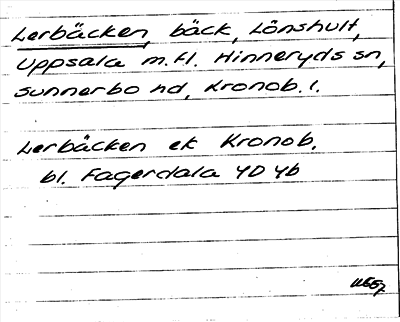 Lerbäcken, bäck, Lönshult,
Uppsala m.fl. Hinneryds sn,
Sunnerbo hd, Kronob. l.
Lerbäcken ek Kronob.
bl. Fagerdala 4D 4b